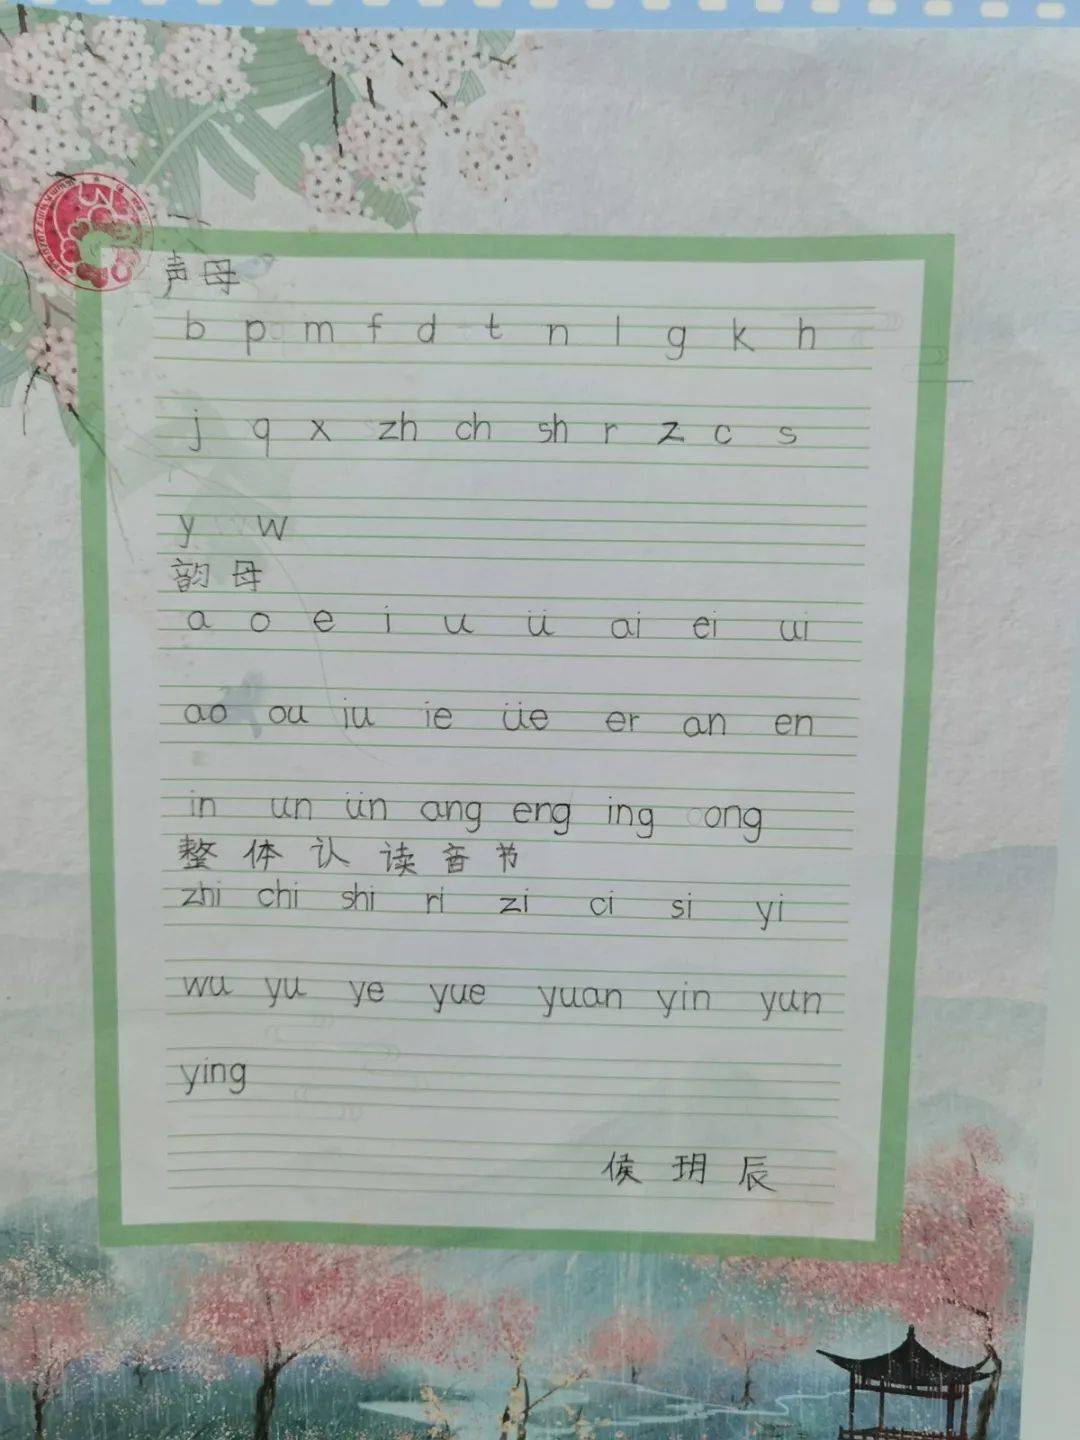 声母
b p m f d t n l g k h
j q x zh ch sh r z c s
y w
韵母
a o e i u ü ai ei ui
ao ou iu ie üe er an en
in un ün ang eng ing ong
整体认读音节
zhi chi shi ri zi ci si yi
wu yu ye yue yuan yin yun
ying
侯玥辰